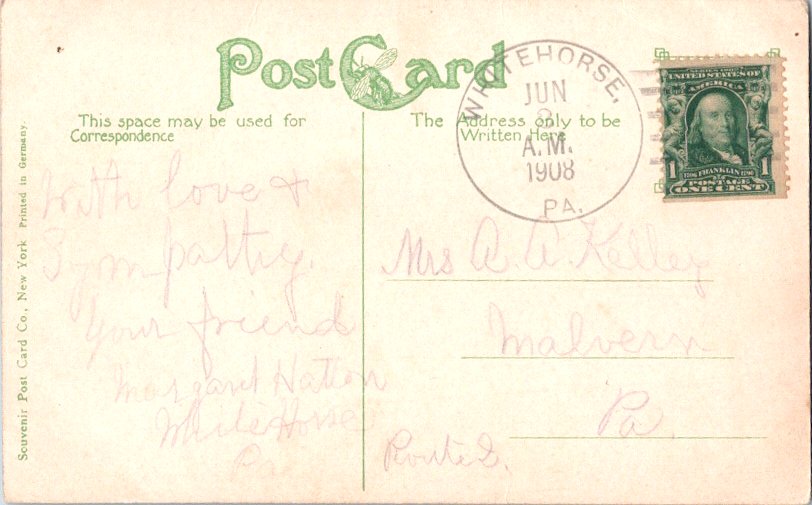 Post Card
This space may be used for
Correspondence
The Address only to be
Written Here
WHITEHORSE,
JUN
A.M.
1908
PA.
SERIES 1902
UNITED STATES OF
AMERICA
1 1706 FRANKLIN 1790 1
POSTAGE
ONE CENT
Souvenir Post Card Co., New York Printed in Germany.
With love &
Sympathy.
Your friend
Margaret Hatton
White Horse
Pa
Mrs A. A. Kelley
Malvern
Pa.
Route 2.